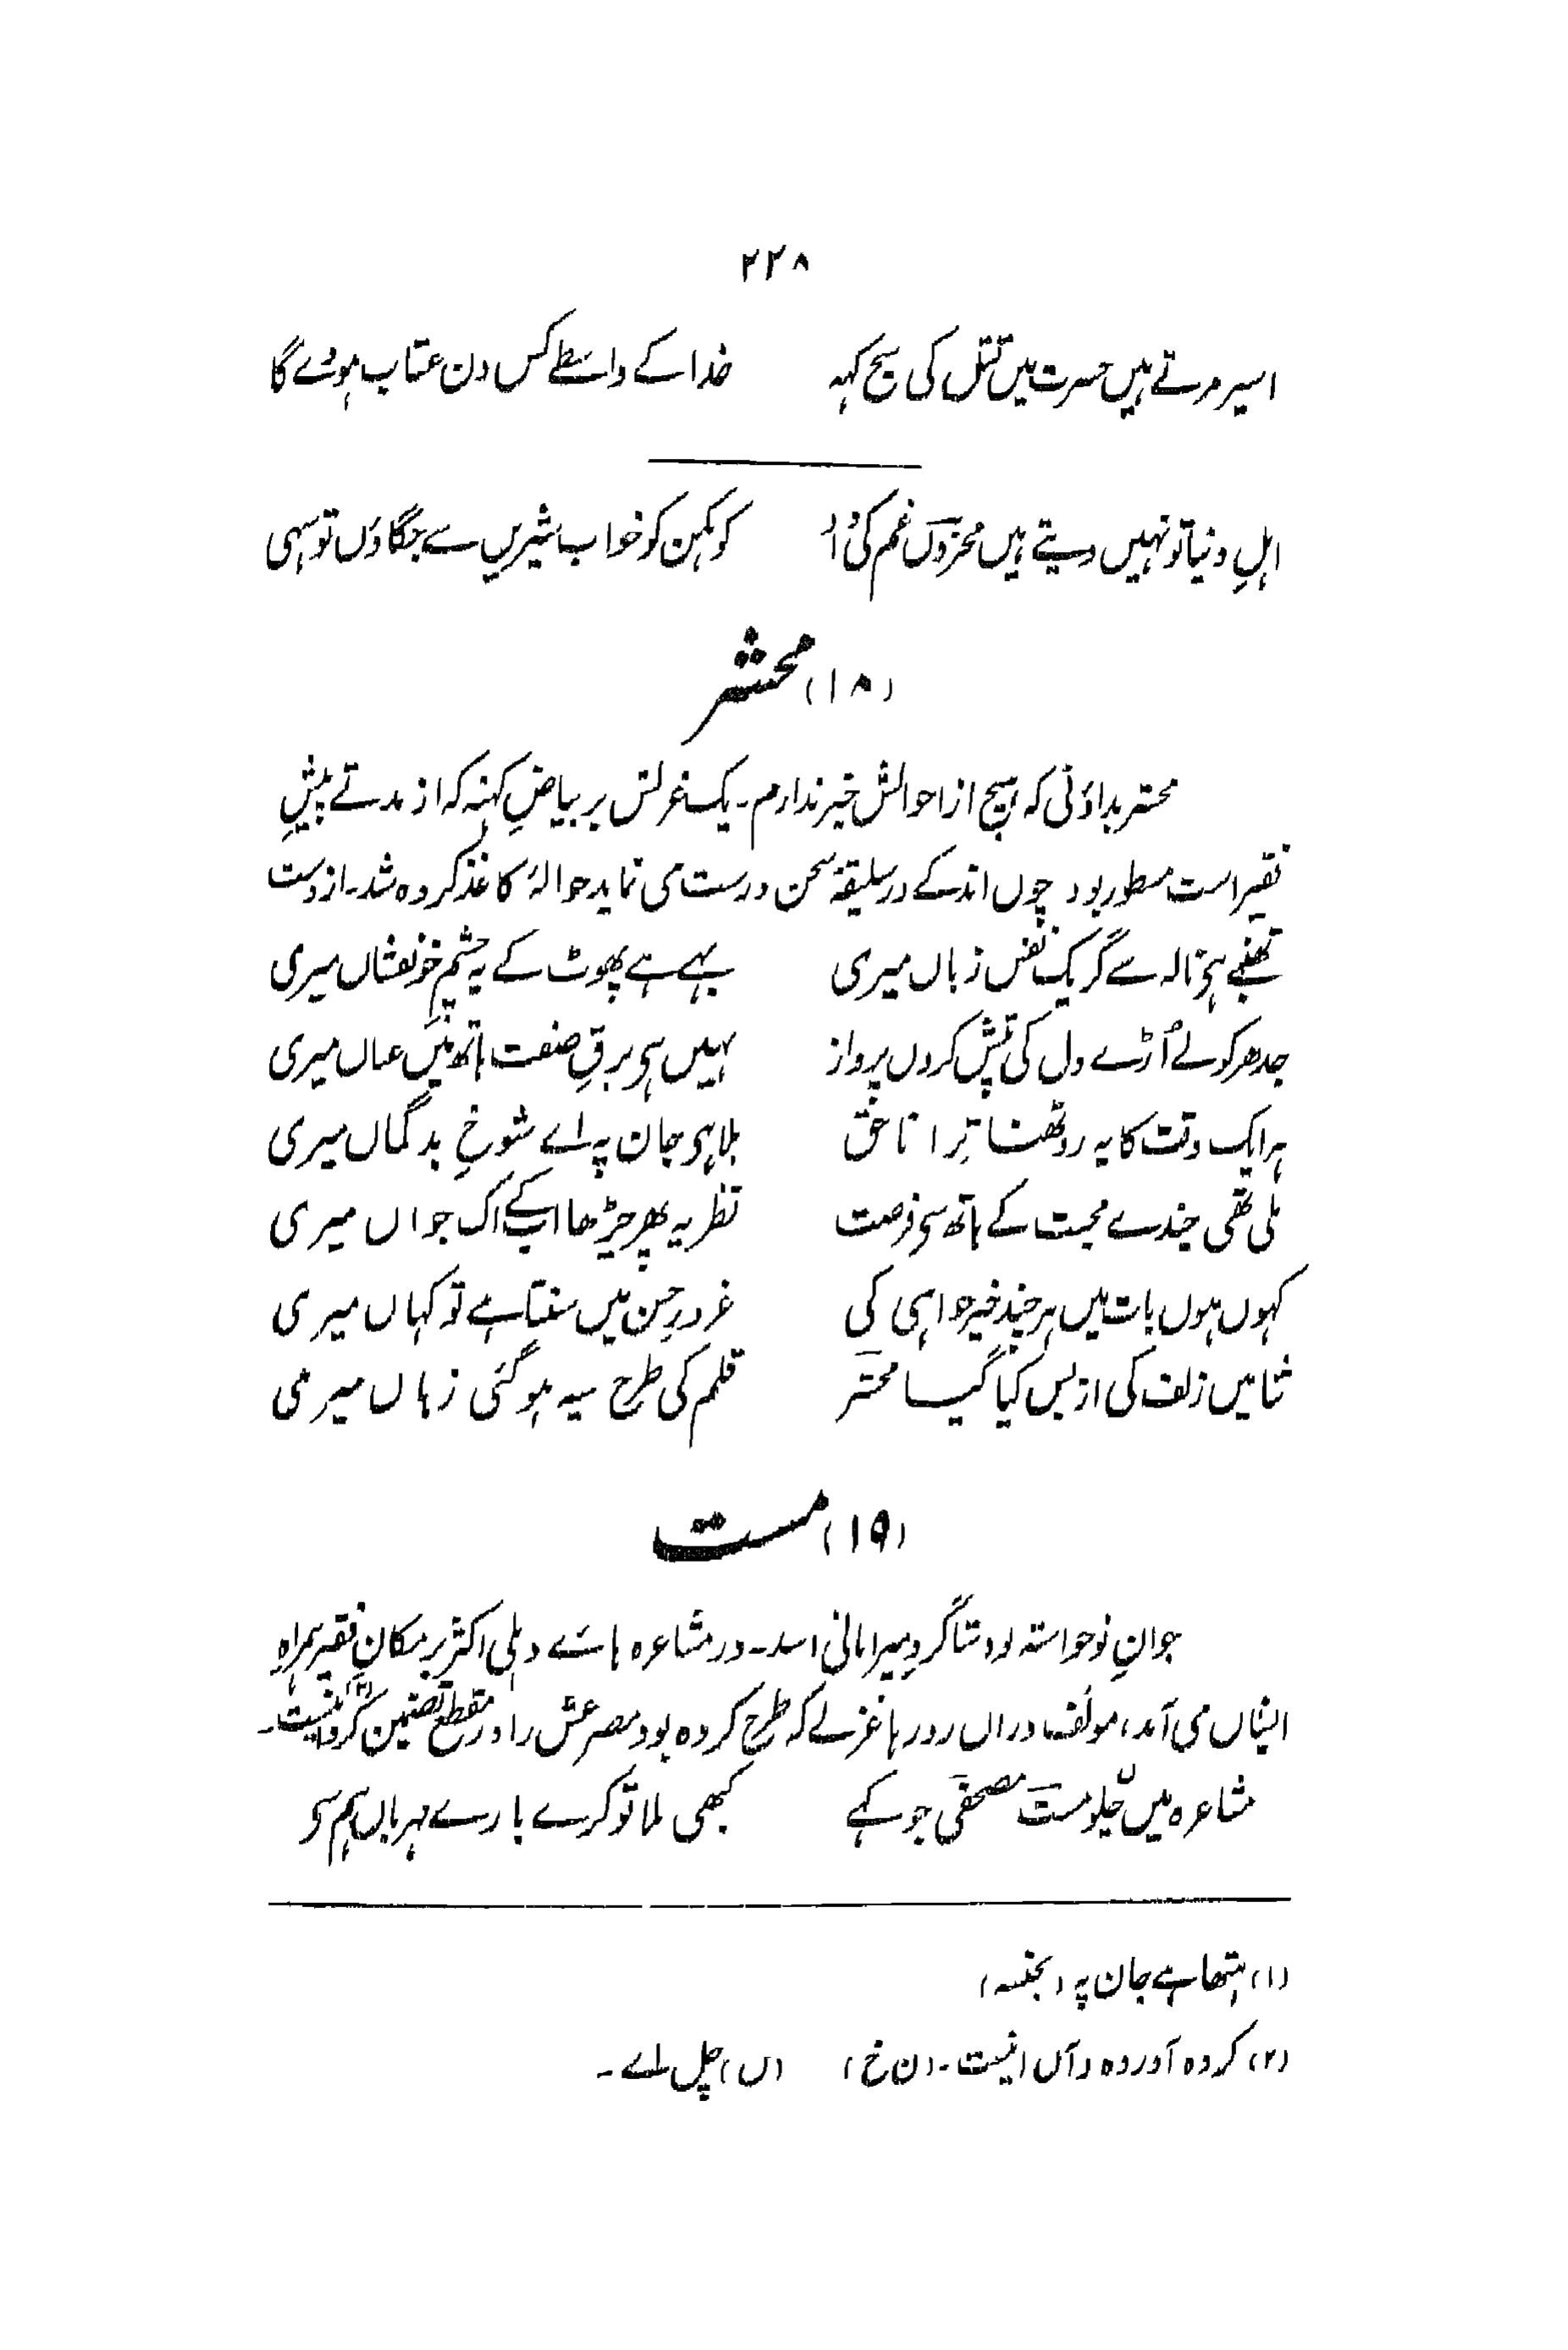 ۲۲۸
اسیر مرتے ہیں حسرت میں قتل کی سچ کہہ خدا کے واسطے کس دن عتاب ہووے گا
اہلِ دنیا تو نہیں دیتے ہیں محزوں غم کی داد کوہکن کو خواب شیریں سے جگاؤں تو سہی
(۱۸) محشر
محشر بداؤنی کہ ہیچ از احوالش خبر ندارم۔ یک غزلش بر بیاضِ کہنہ کہ از مدتے پیشِ
فقیر است مسطور بود چوں اندکے در سلیقۂ سخن درست می نماید حوالۂ کاغذ کردہ شد۔ ازوست
تھنبے ہی نالہ سے گر یک نفس زباں میری بہے ہے پھوٹ کے یہ چشمِ خونفشاں میری
جدھر کو لے اُڑے دل کی تپش کروں پرواز نہیں ہی برقِ صفت ہاتھ میں عناں میری
ہر ایک وقت کا یہ روٹھنا ترا ناحق بلا ہی جان پہ اے شوخِ بدگماں میری
ملی تھی چندے محبت کے ہاتھ سی فرصت نظر یہ پھر چڑھا ابکے اک جواں میری
کہوں ہوں بات میں ہر چند خیر خواہی کی غرورِ حسن میں سنتا ہے تو کہاں میری
ثنا میں زلف کی ازبس کیا گیا محشر قلم کی طرح سیہ ہو گئی زباں میری
(۱۹) مست
جوانِ نوخواستہ بود شاگردِ میر امانی اسد۔ در مشاعرہ ہائے دہلی اکثر بر مکانِ فقیر ہمراہِ
ایشاں می آمد، مولف دراں روزہا غزلے کہ طرح کردہ بود مصرعش را در مقطع تضمین کردہ (۲)
مشاعرہ میں چلو مست مصحفی جو کہے کبھی ملا تو کرے بارے مہرباں ہم سی
(۱) ہتھا ہے جان پہ (بجنسہ)
(۲) کردہ آوردہ و آں اینست۔ (ن خ) (ں) چل اے۔